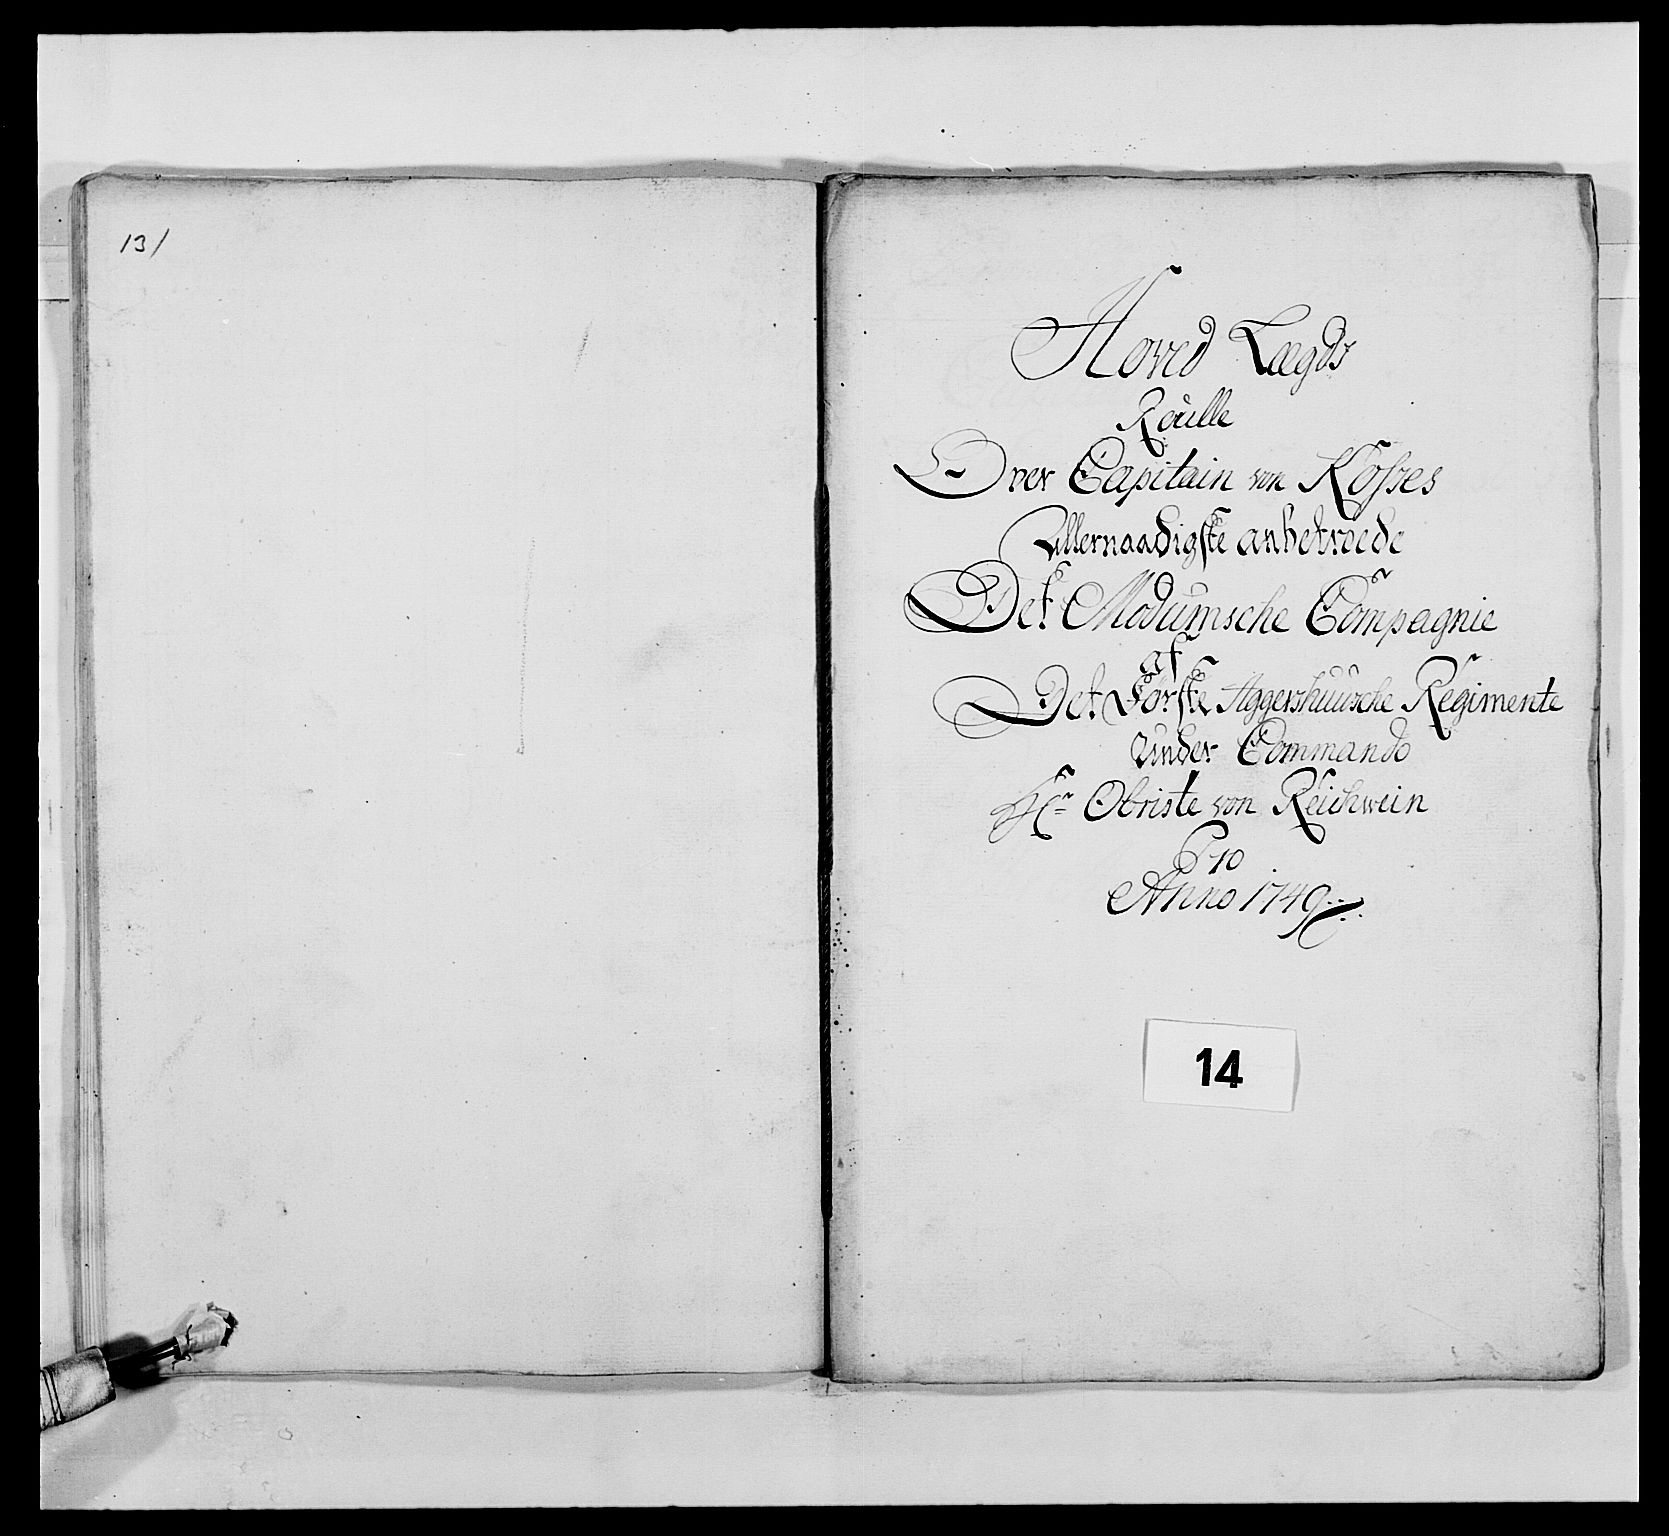 13/
Hoved Lægds
Roulle
Over Capitain von Kosses
Allernaadigste anbetroede
Det Modumsche Compagnie
af
Det Förste Aggershuusche Regimente
Under Commando
Hr Obriste von Reichwein
Pro
Anno 1749
14